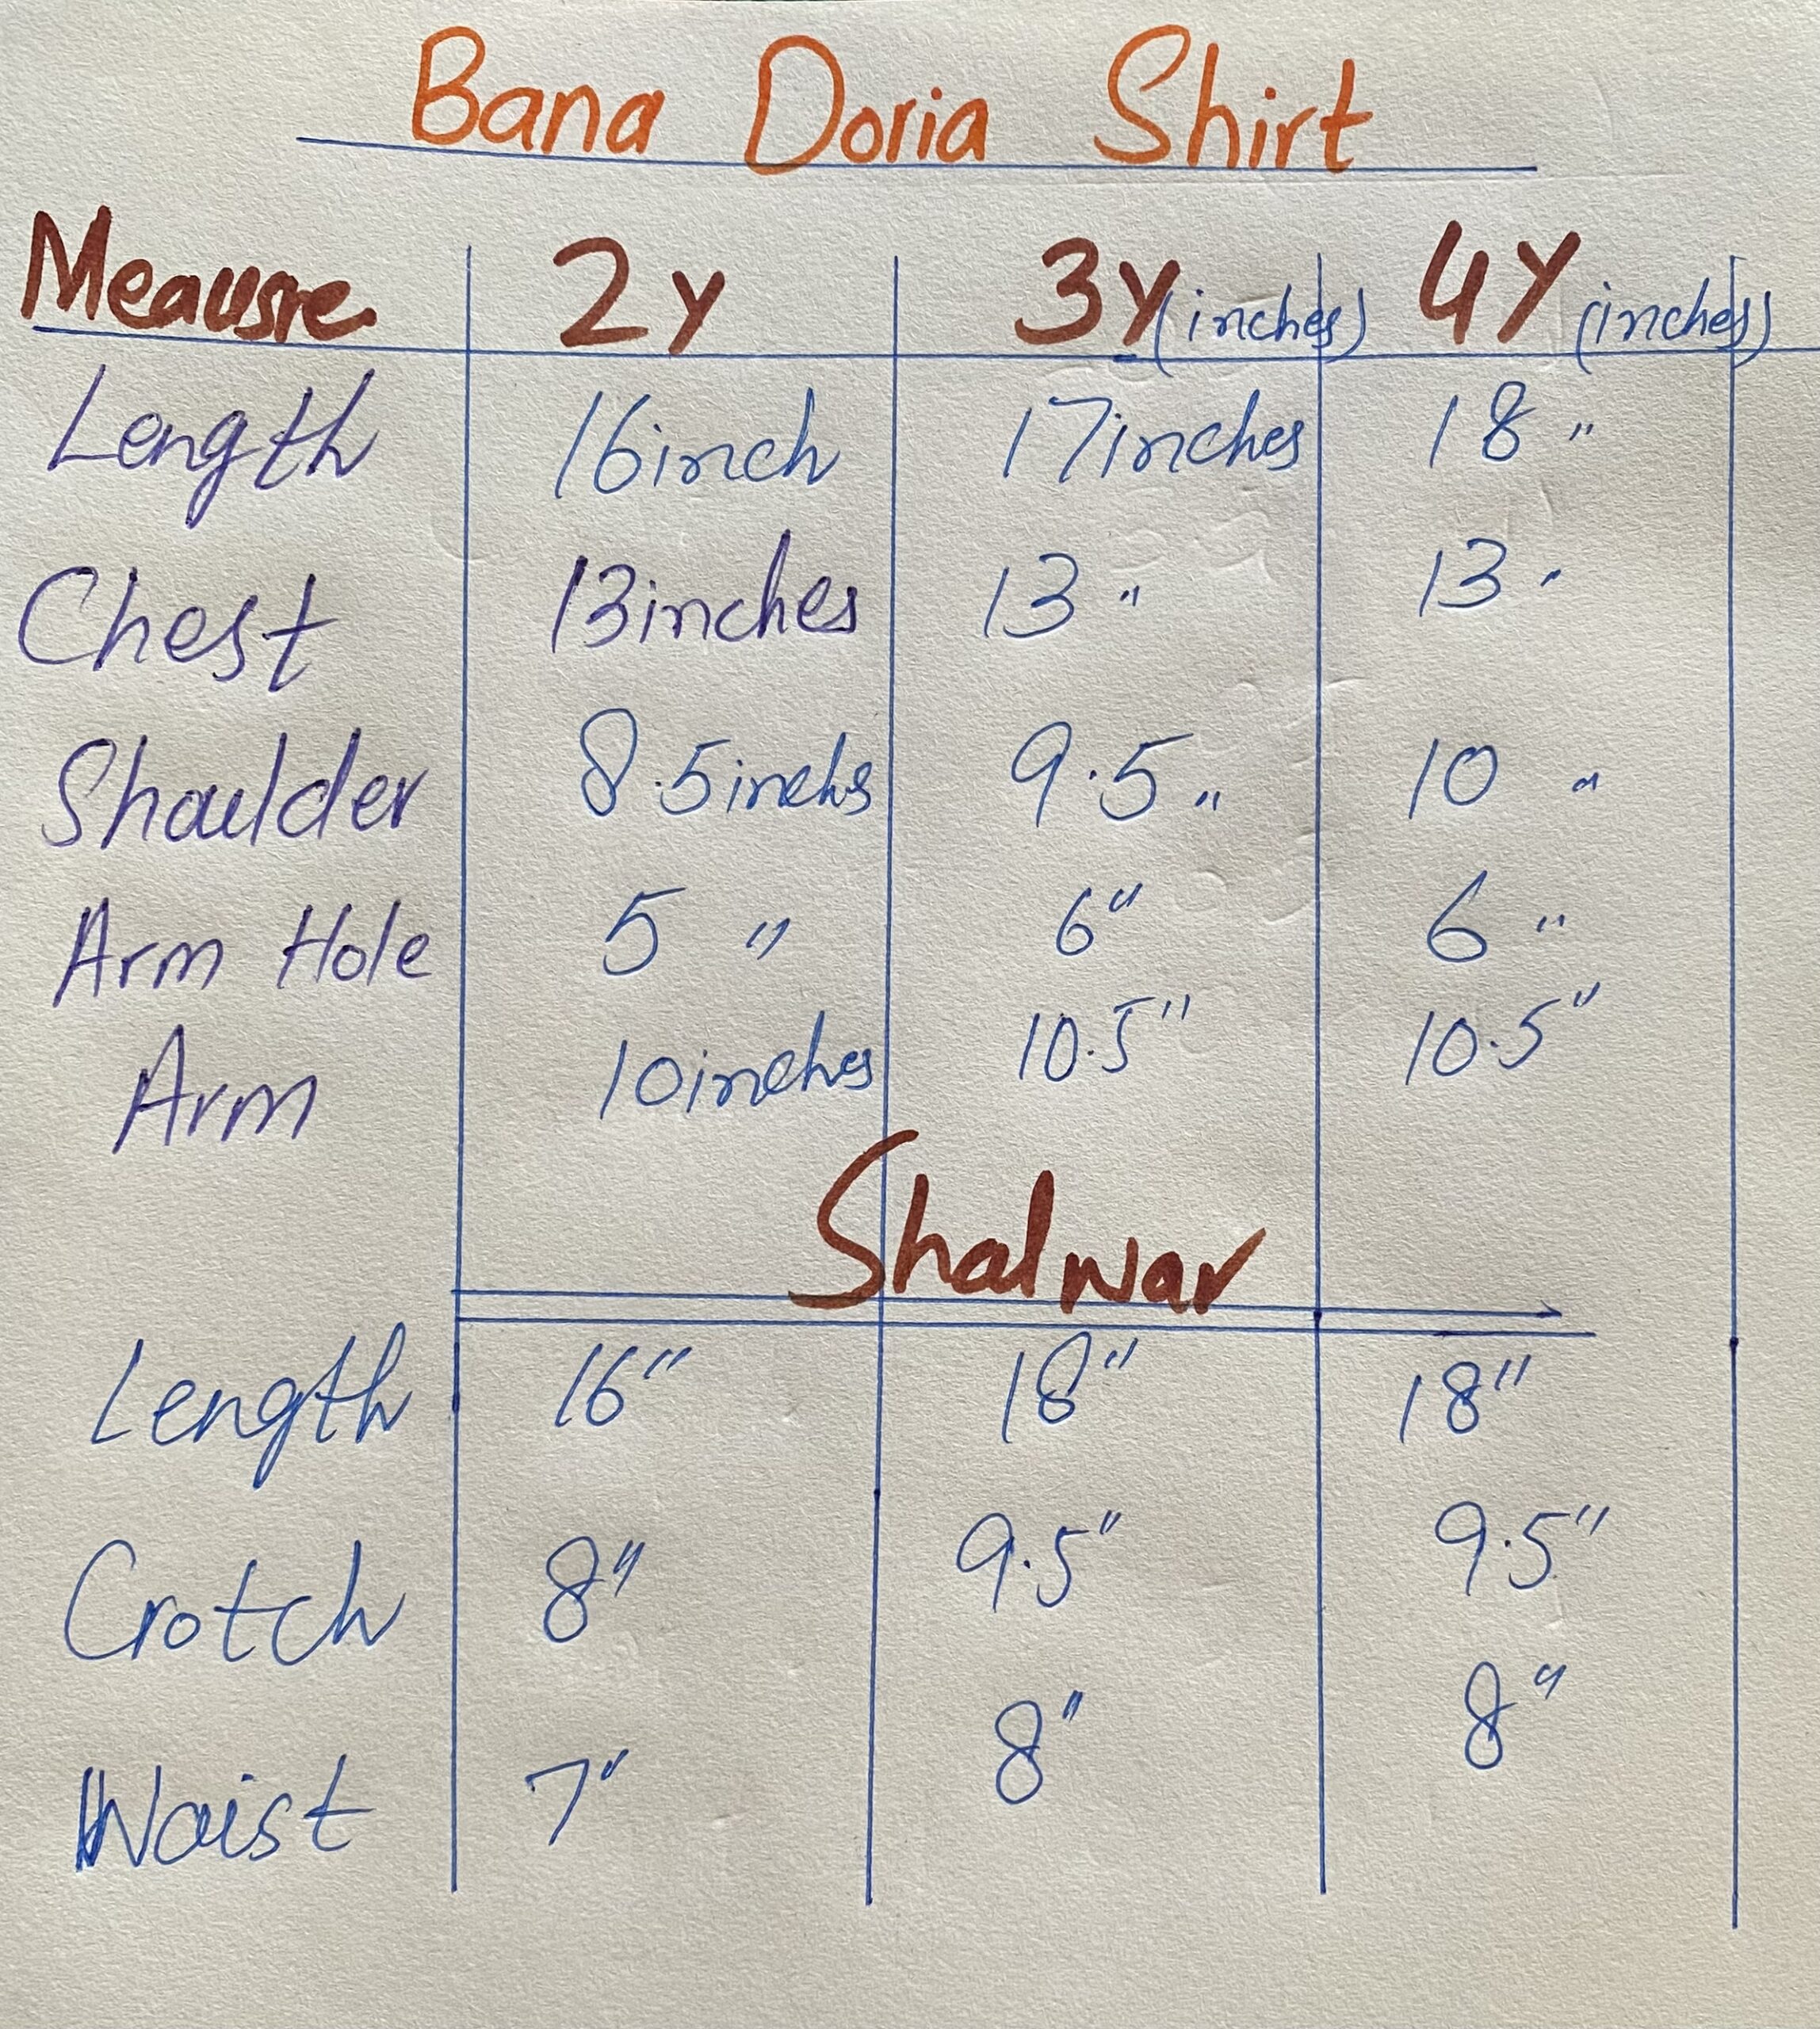 Bana Doria Shirt
Meausre 2y 3Y(inches) 4Y (inches)
Length 16inch 17inches 18 "
Chest 13inches 13 " 13 "
Shoulder 8.5inchs 9.5 " 10 "
Arm Hole 5 " 6" 6 "
Arm 10inches 10.5" 10.5"
Shalwar
Length 16" 18" 18"
Crotch 8" 9.5" 9.5"
Waist 7" 8" 8"